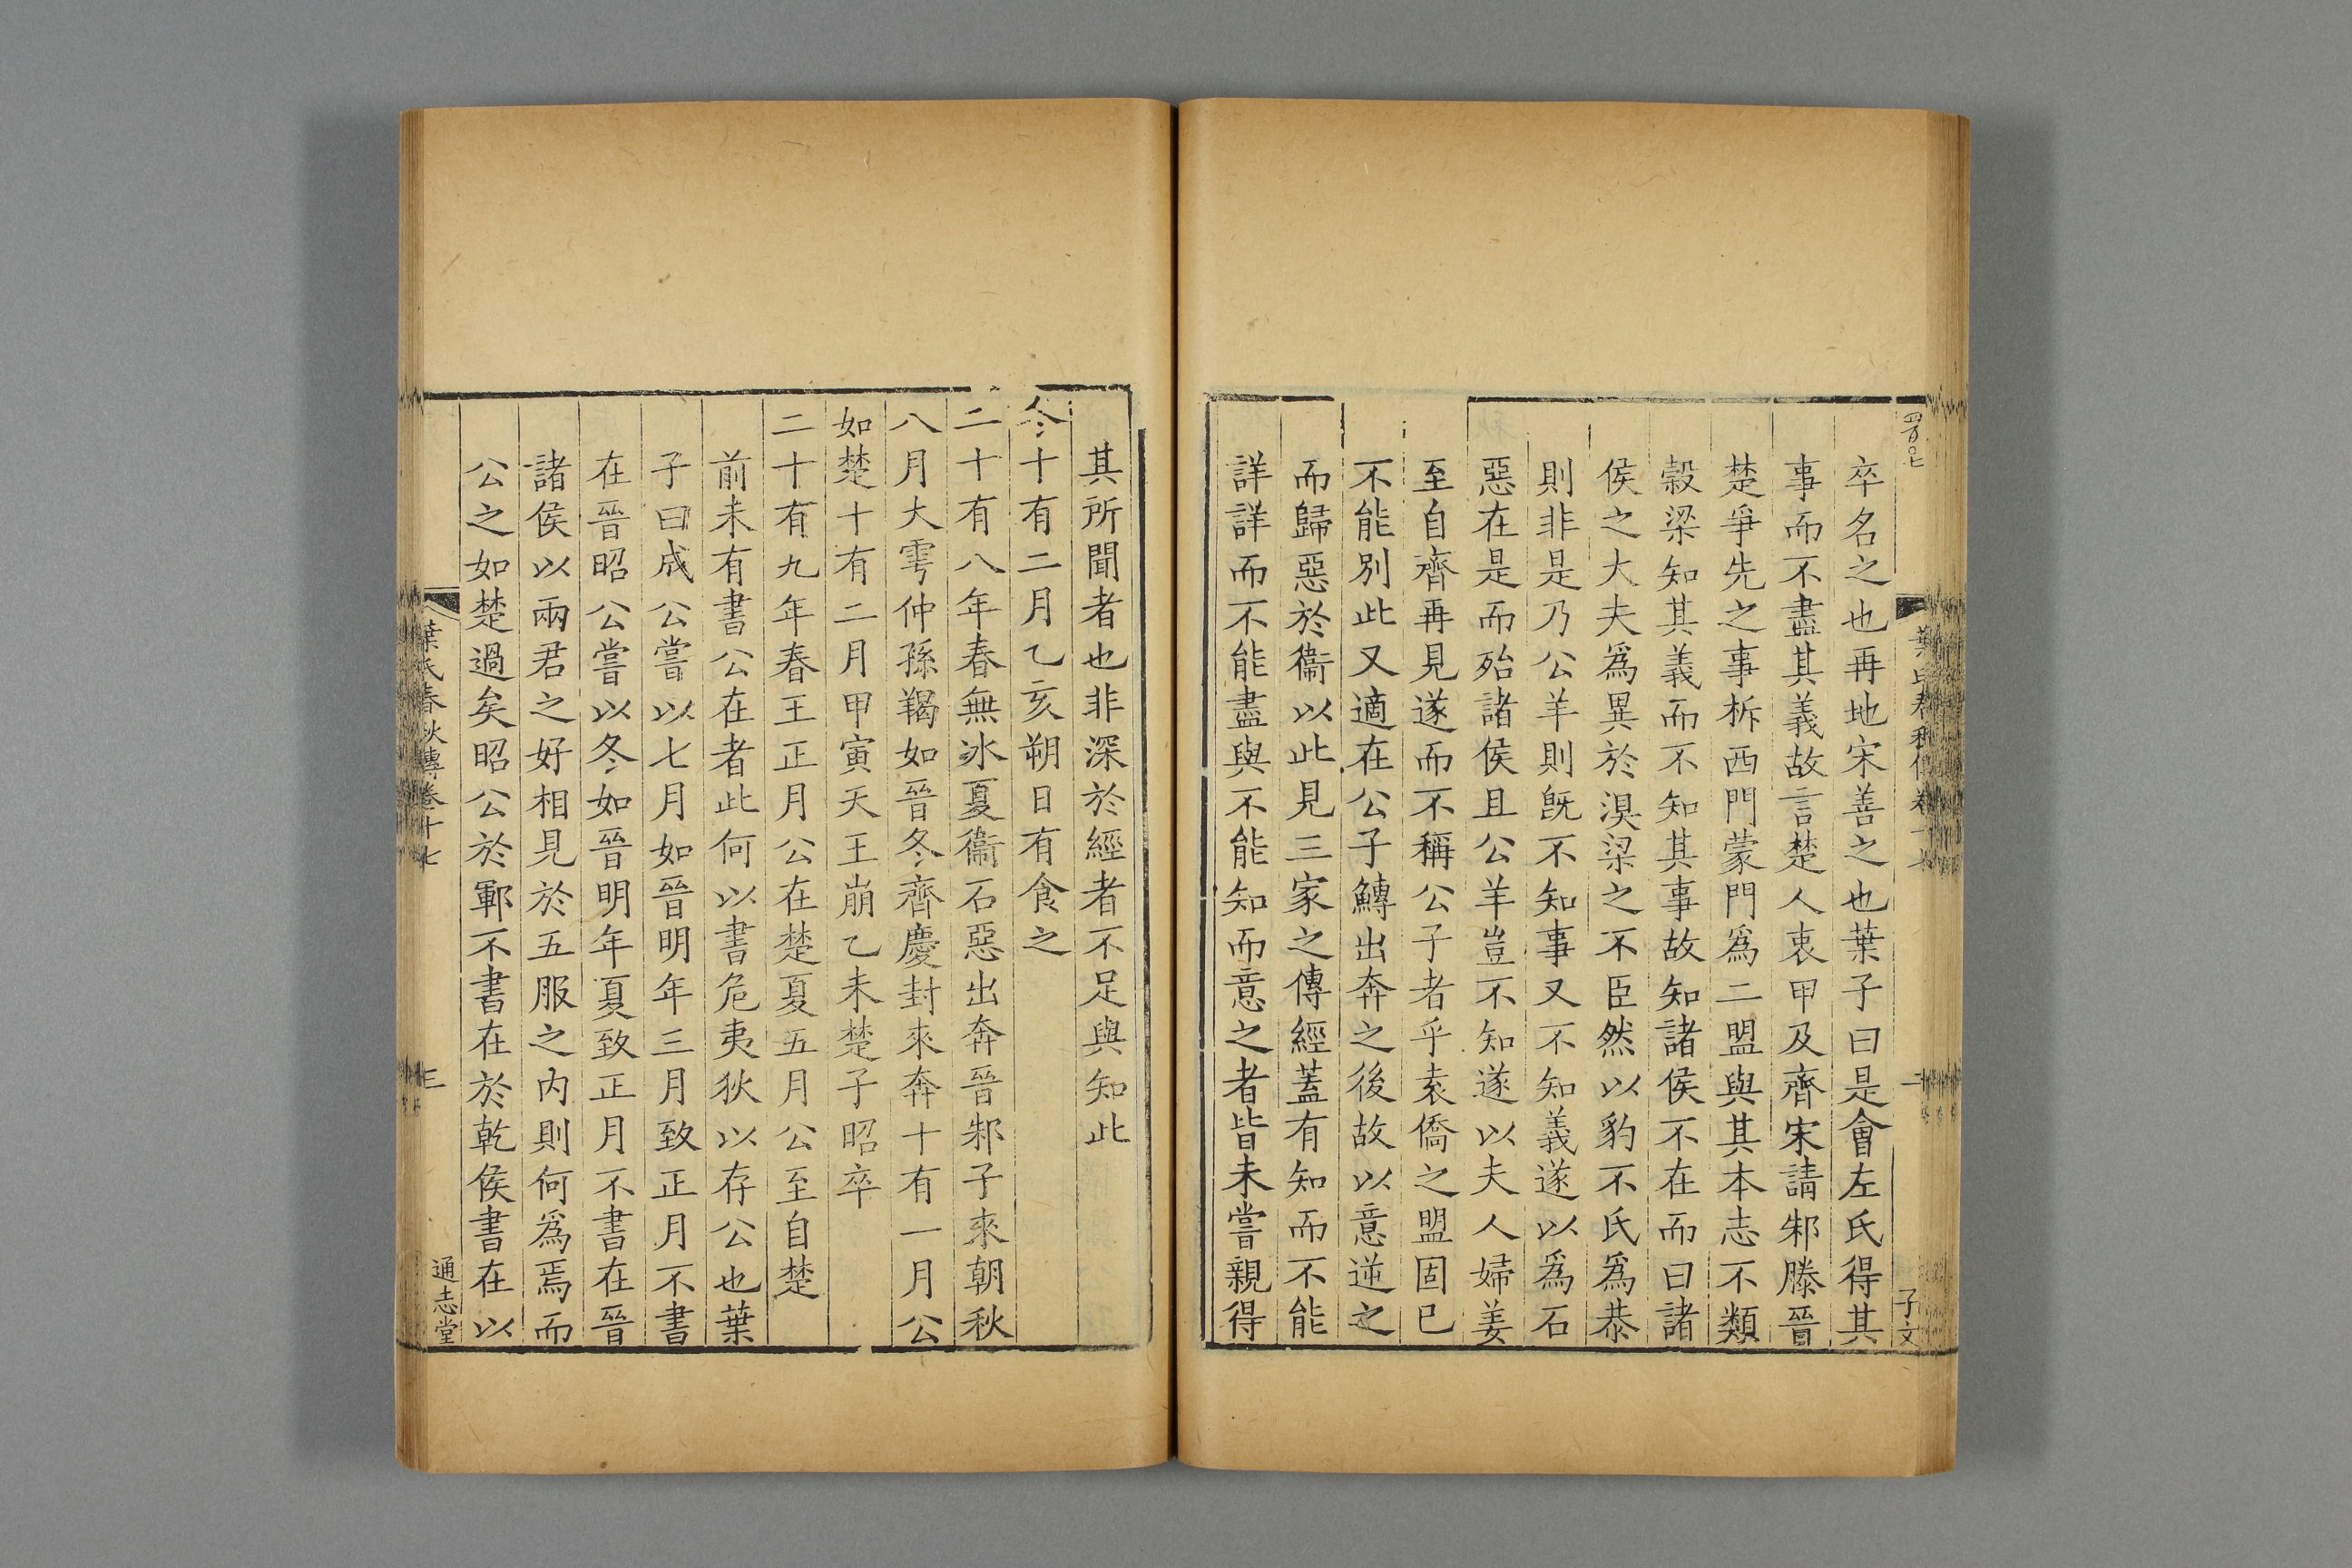 卒名之也再地宋善之也葉子曰是會左氏得其
事而不盡其義故言楚人衷甲及齊宋請邾滕晉
楚爭先之事柝西門蒙門爲二盟與其本志不類
穀梁知其義而不知其事故知諸侯不在而曰諸
侯之大夫爲異於湨梁之不臣然以豹不氏爲恭
則非是乃公羊則旣不知事又不知義遂以爲石
惡在是而殆諸侯且公羊豈不知遂以夫人婦姜
至自齊再見遂而不稱公子者乎袁僑之盟固已
不能別此又適在公子鱄出奔之後故以意逆之
而歸惡於衞以此見三家之傳經蓋有知而不能
詳詳而不能盡與不能知而意之者皆未嘗親得
子文
其所聞者也非深於經者不足與知此
冬十有二月乙亥朔日有食之
二十有八年春無冰夏衞石惡出奔晉邾子來朝秋
八月大雩仲孫羯如晉冬齊慶封來奔十有一月公
如楚十有二月甲寅天王崩乙未楚子昭卒
二十有九年春王正月公在楚夏五月公至自楚
前未有書公在者此何以書危夷狄以存公也葉
子曰成公嘗以七月如晉明年三月致正月不書
在晉昭公嘗以冬如晉明年夏致正月不書在晉
諸侯以兩君之好相見於五服之內則何爲焉而
公之如楚過矣昭公於鄆不書在於乾侯書在以
葉氏春秋傳卷十七
三
通志堂